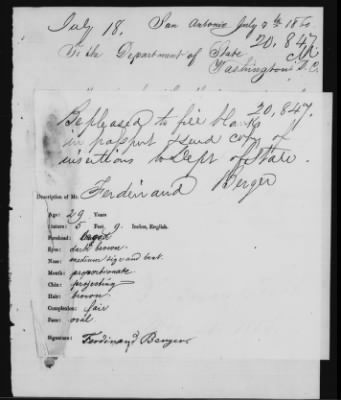 July 18. San Antonio July 9th 1860
20,847
To the Department of State
Washington D.C.
20,847.
Be pleased to fill blanks
in passport & send copy of
insertions to Dept of State.
Description of Mr. Ferdinand Berger
Age: 29 Years
Stature: 5 Feet 9. Inches, English.
Forehead:
Eyes: dark brown
Nose: medium size and bent
Mouth: proportionate
Chin: projecting
Hair: brown
Complexion: fair
Face: oval
Signature: Ferdinand Berger